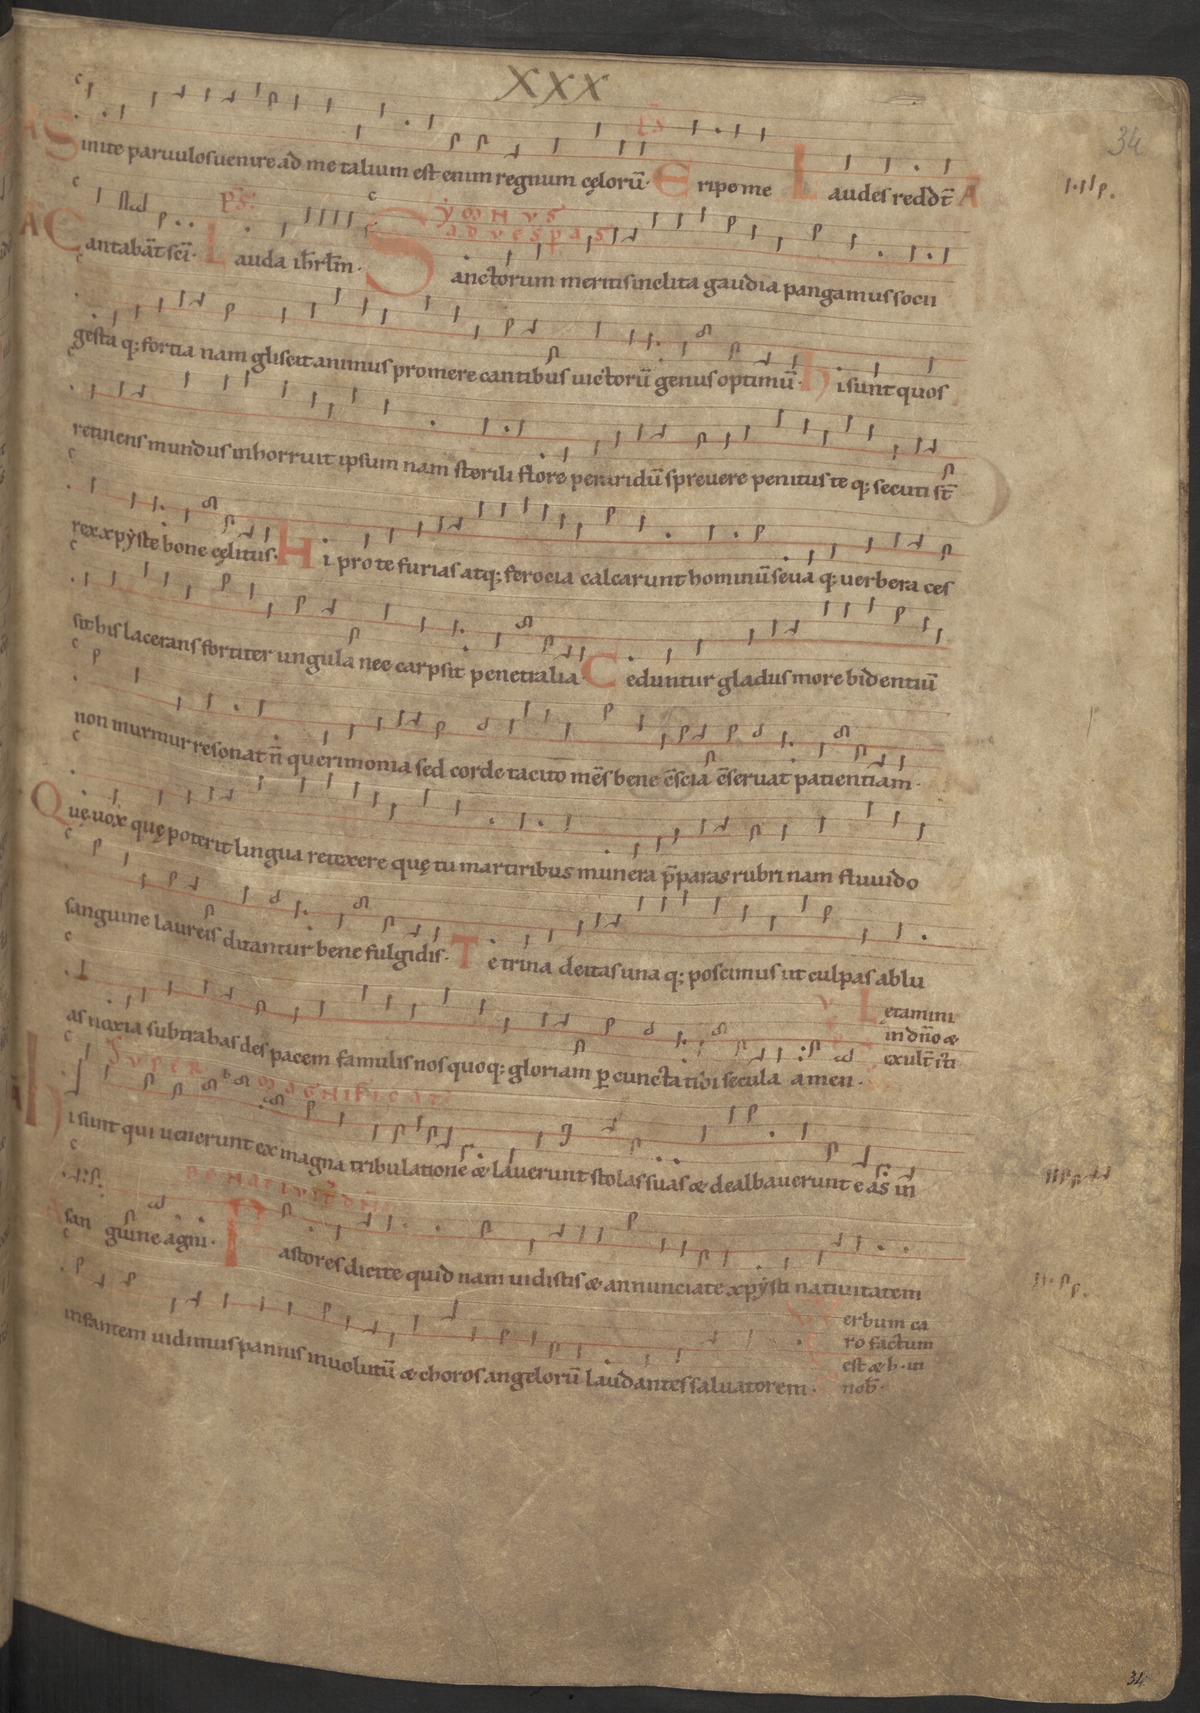 XXX
34
Sinite paruulos uenire ad me talium est enim regnum cęlorū· Eripe me Laudes reddt̄ A
Cantabāt sc̄i· ps̄ Lauda ih̄rlm̄·
YMNVS
AD VESPAS
Sanctorum meritis inclita gaudia pangamus socii
gesta q; fortia nam gliscit animus promere cantibus uictorū genus optimū· hi sunt quos
retinens mundus inhorruit ipsum nam sterili flore peraridū spreuere penitus te q; secuti st̄
rex xpÿste bone cęlitus· Hi pro te furias atq; ferocia calcarunt hominū seua q; uerbera ces
sit his lacerans fortiter ungula nec carpsit penetralia Ceduntur gladiis more bidentiū
non murmur resonat n̄ querimonia sed corde tacito mēs bene c̄scia c̄seruat patientiam·
Quę uox quę poterit lingua retexere quę tu martiribus munera p̄paras rubri nam fluuido
sanguine laureis ditantur bene fulgidis· Te trina deitas una q; poscimus ut culpas ablu
Lętamini
in dn̄o æ
exult̄ isti
as noxia subtrahas des pacem famulis nos quoq; gloriam p cuncta tibi secula amen·
SVPER MAGNIFICAT
Hi sunt qui uenerunt ex magna tribulatione æ lauerunt stolas suas æ dealbauerunt eas in
DE NATIVIT DNI
san guine agni· Pastores dicite quid nam uidistis æ annunciate xpÿsti natiuitatem
Verbum ca
ro factum
est æ h· in
nob̄·
infantem uidimus pannis inuolutū æ choros angelorū laudantes saluatorem·
34